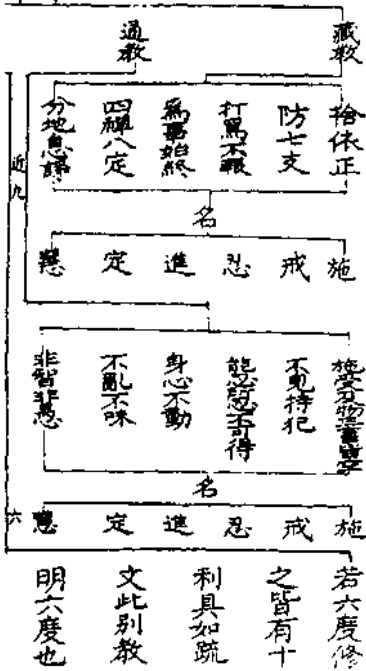 藏教
通教
捨依正
防七支
打罵不報
爲善始終
四禪八定
分地息諍
近九
名
施
戒
忍
進
定
慧
施受及物空
不見持犯
能忍所忍不可得
身心不動
不亂不味
非智非愚
名
施
戒
忍
進
定
慧
六
若六度修
之皆有十
利具如疏
文此別教
明六度也